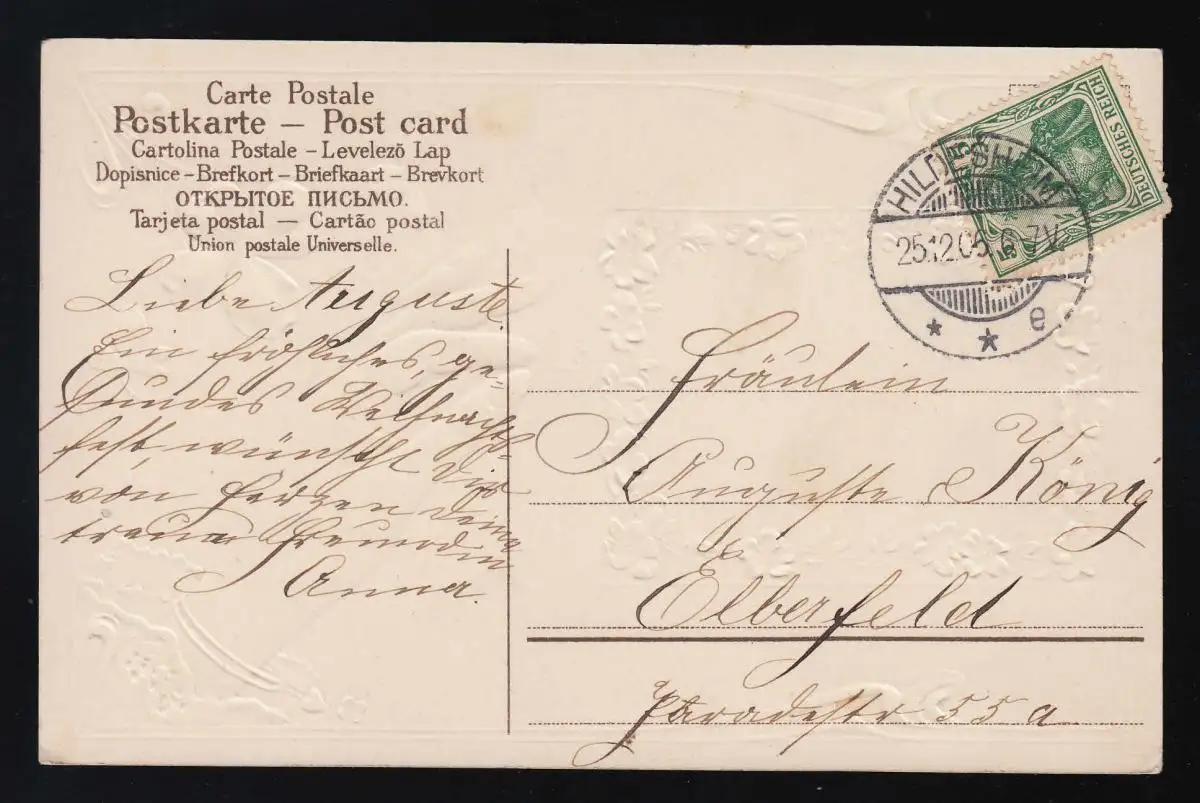 Carte Postale
Postkarte – Post card
Cartolina Postale – Levelező Lap
Dopisnice – Brefkort – Briefkaart – Brevkort
ОТКРЫТОЕ ПИСЬМО.
Tarjeta postal — Cartão postal
Union postale Universelle.
Liebe Auguste
Ein fröhliches, ge-
sundes Weihnachts-
fest, wünscht dir
von Herzen deine
treue Freundin
Anna.
DEUTSCHES REICH
5 5
HILDESHEIM
25.12.05. 6-7V.
* * e
Fräulein
Auguste König
Elberfeld
Paradestr 55 a